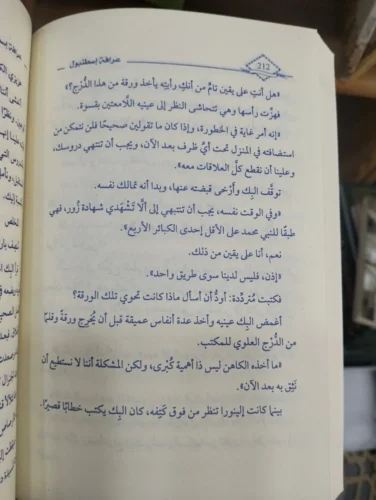 212
عرافة إسطنبول
«هل أنتِ على يقين تام من أنكِ رأيتِه يأخذ ورقة من هذا الدُّرْج؟»
فهزَّت رأسها وهي تتحاشى النظر إلى عينيه اللَّامعتين بقسوة.
«إنه أمر غاية في الخطورة، وإذا كان ما تقولين صحيحًا فلن نتمكن من
استضافته في المنزل تحت أيِّ ظرف بعد الآن، ويجب أن تنتهي دروسك،
وعلينا أن نقطع كلَّ العلاقات معه».
توقَّف البِك وأَرْخى قبضته عنها، وبدا أنه تمالك نفسه.
«وفي الوقت نفسه، يجب أن تنتبهي إلى ألَّا تَشْهَدي شهادة زُور، فهي
طبقًا للنبي محمد على الأقل إحدى الكبائر الأربع».
نعم، أنا على يقين من ذلك.
«إذن، فليس لدينا سوى طريق واحد».
فكتبت مُتردِّدة: أودُّ أن أسأل ماذا كانت تحوي تلك الورقة؟
أغمض البِك عينيه وأخذ عدة أنفاس عميقة قبل أن يُخرِج ورقةً وقلمًا
من الدُّرْج العلوي للمكتب.
«ما أخذه الكاهن ليس ذا أهمية كُبْرى، ولكن المشكلة أننا لا نستطيع أن
نَثِق به بعد الآن».
بينما كانت إلينورا تنظر من فوق كَتِفه، كان البِك يكتب خطابًا قصيرًا.